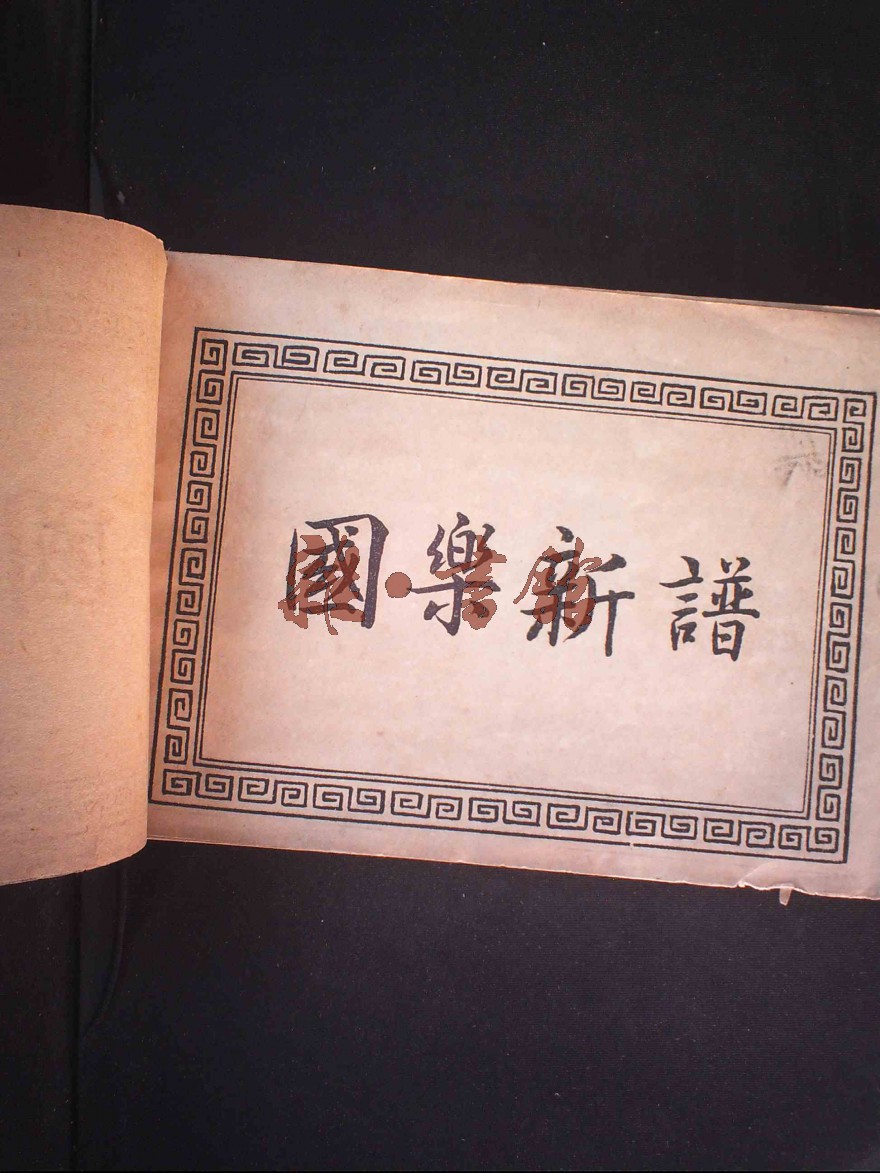 國樂新譜